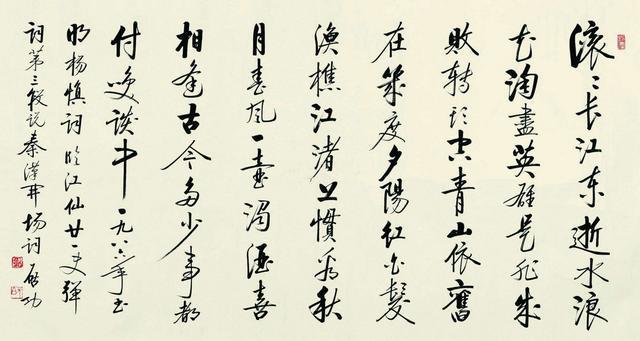 滚〻长江东逝水浪
花淘盡英雄是非成
敗转头空青山依舊
在幾度夕陽红白髮
渔樵江渚上慣看秋
月春风一壶濁酒喜
相逢古今多少事都
付笑谈中一九八六年书
明杨慎词临江仙廿一史弹
词第三段说秦漢开场词 启功